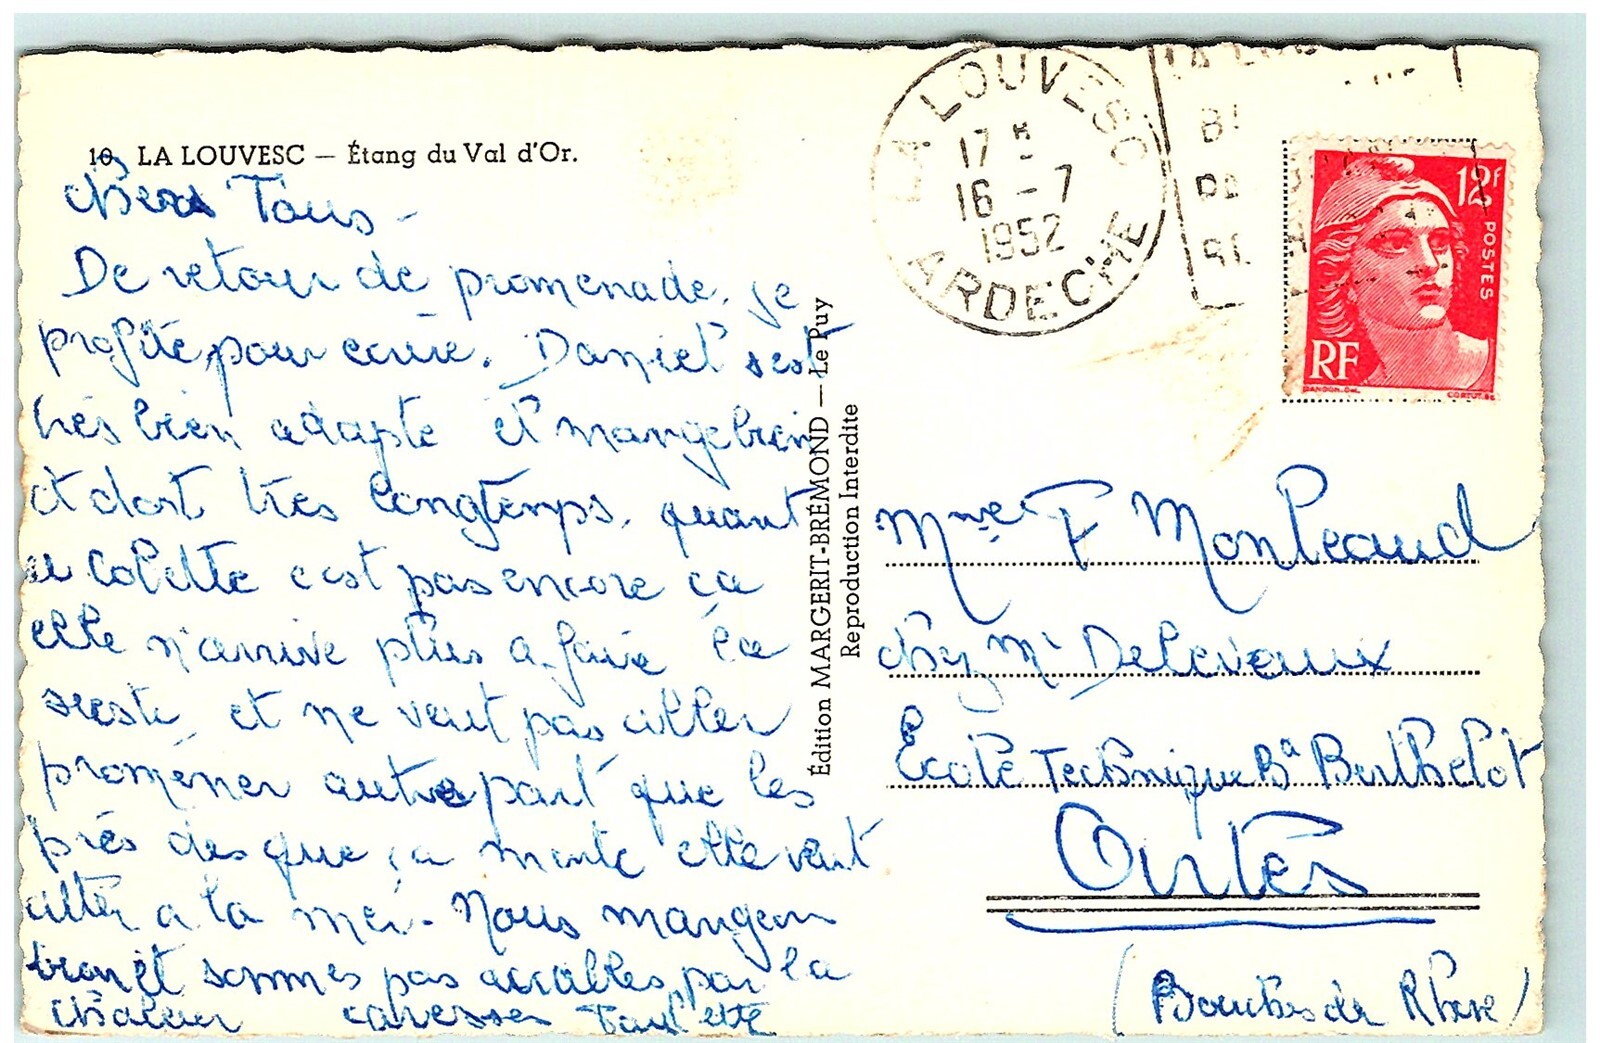 10. LA LOUVESC — Étang du Val d'Or.
chers Tous -
De retour de promenade, je
profite pour écrire. Daniel s'est
très bien adapté et mange bien
et dort très longtemps, quant
a Colette c'est pas encore ça
elle n'arrive plus a faire la
sieste, et ne veut pas aller
promener autre part que les
près des que ça monte elle veut
aller a la mer. Nous mangeon
bien et sommes pas accablés par la
chaleur caresses Paulette
Édition MARGERIT-BRÉMOND — Le Puy
Reproduction Interdite
LA LOUVESC
17 H
16 - 7
1952
ARDECHE
12F
POSTES
RF
Mme F Monteaud
chez Mr Delevaux
École Technique Bd Berthelot
(Bouches du Rhône)